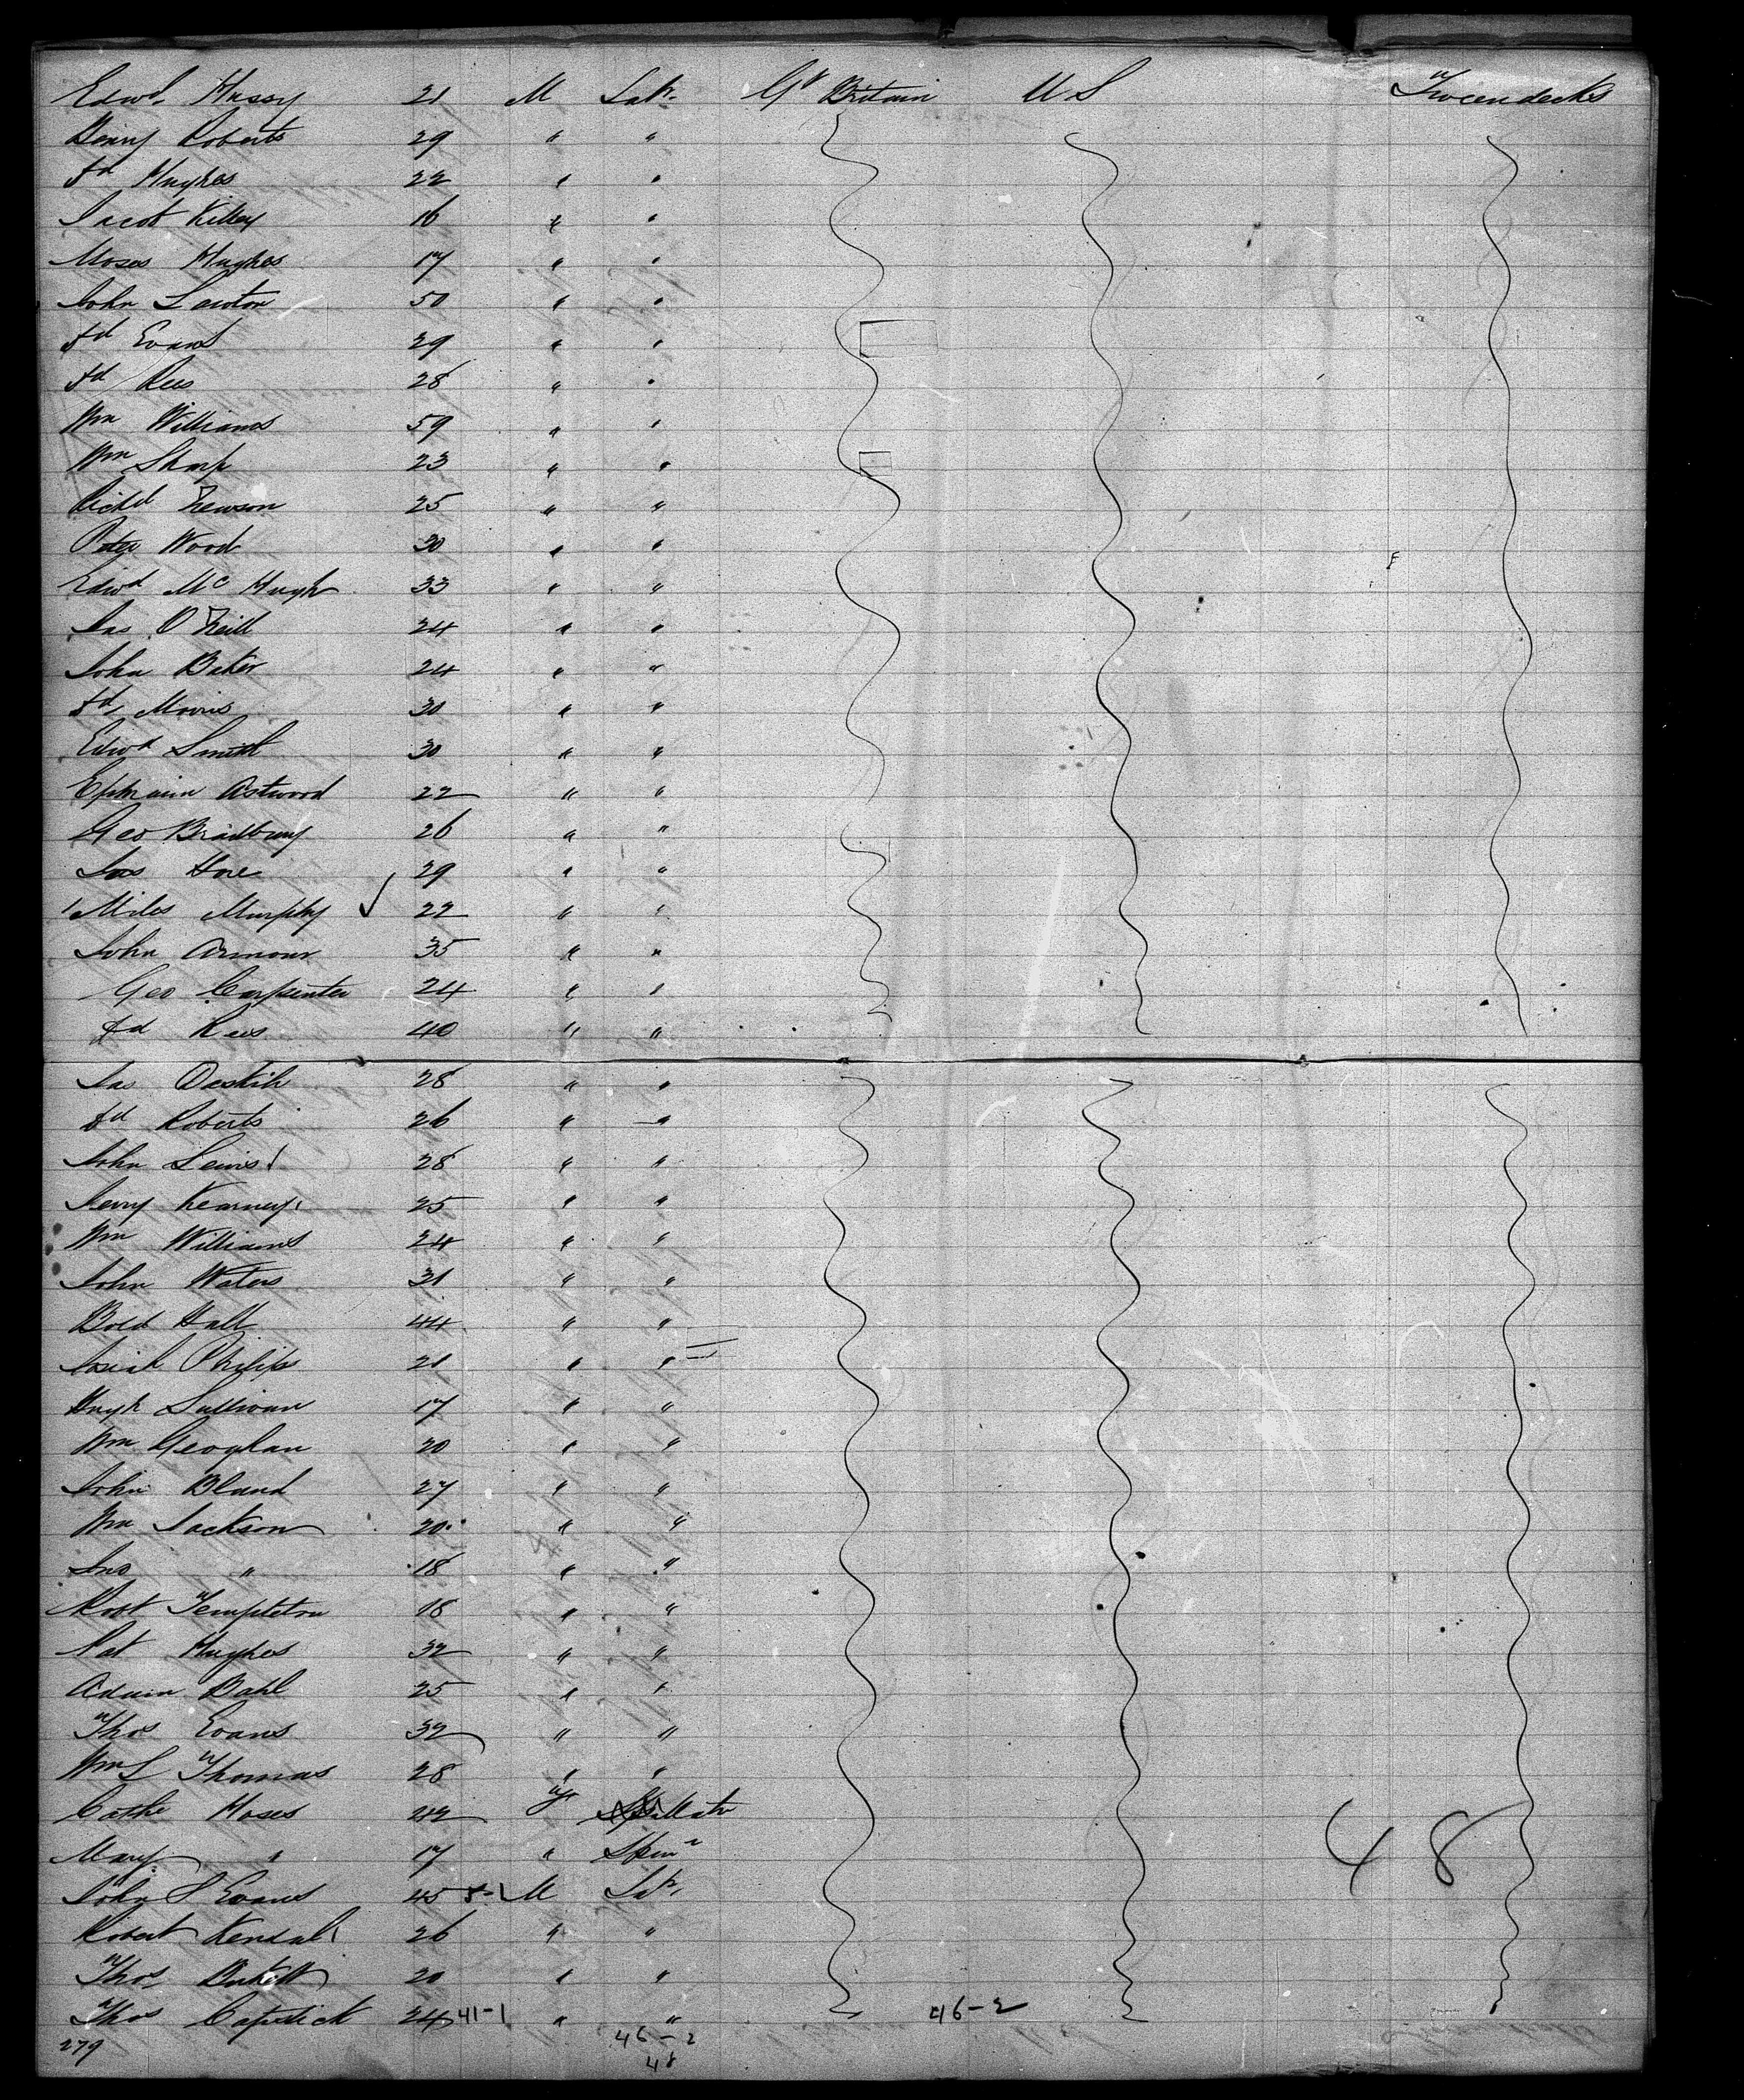 Edwd. Hussy 21 M Labr. Gt Britain U S Tweendecks
Henry Roberts 29 " "
Jd Hughes 22 " "
Jacob Killey 16 " "
Moses Hughes 17 " "
John Lawton 50 " "
Jd Evans 29 " "
Jd Rees 28 " "
Wm Williams 59 " "
Wm Sharp 23 " "
Richd Newson 25 " "
Peter Wood 30 " "
Edwd Mc Hugh 33 " "
Jas O'Neill 24 " "
John Baker 24 " "
Jd Morris 30 " "
Edwd Smith 30 " "
Ephraim Astwood 22 " "
Geo Bradbury 26 " "
Jas Hore 29 " "
Miles Murphy ✓ 22 " "
John Armour 35 " "
Geo Carpenter 24 " "
Jd Rees 40 " "
Jas 28 " "
Jd Roberts 26 " "
John Lewis 28 " "
Jerry Kearney 25 " "
Wm Williams 24 " "
John Waters 31 " "
Bold Hall 44 " "
Josiah Philips 21 " "
Hugh Sullivan 17 " "
Wm Geoghan 20 " "
John Bland 27 " "
Wm Jackson 20 " "
Jno " 18 " "
Robt Templeton 18 " "
Pat Hughes 32 " "
Adam Dahl 25 " "
Thos Evans 32 " "
Wm L Thomas 28 " "
Cathe Moses 42 Matr
Mary " 17 " Spinr
John S Evans 45 8-1 M Labr. 48
Robert Kendal 26 " "
Thos 20 " "
Thos Capstick 24 41-1 " " 46-2
279 46-2
48